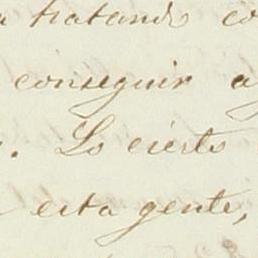 a tratando co
conseguir a
. Lo cierto
esta gente,